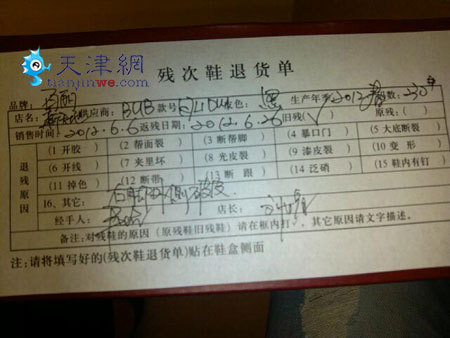 天津網
www.tianjinwe.com
残次鞋退货单
品牌: 百丽 供应商: BUB 款号: 颜色: 黑 生产年季: 2012 码数: 230#
店名:
销售时间: 2012.6.6 返残日期: 2012.6.26 旧残(√) 原残( )
退残原因
(1 开胶 ) (2 帮面裂 ) (3 断帮脚 ) (4 暴口门 ) (5 大底断裂 )
(6 断线 ) (7 夹里坏 ) (8 光皮裂 ) (9 漆皮裂 ) (10 变形 )
(11 掉色 ) (12 断带 ) (13 断跟 ) (14 泛硝 ) (15 鞋内有钉 )
16、其它: 右鞋 侧 破皮
经手人: 店长:
备注: 对残鞋的原因(原残鞋旧残鞋)请在框内打 , 其它原因请文字描述。
注:请将填写好的(残次鞋退货单)贴在鞋盒侧面